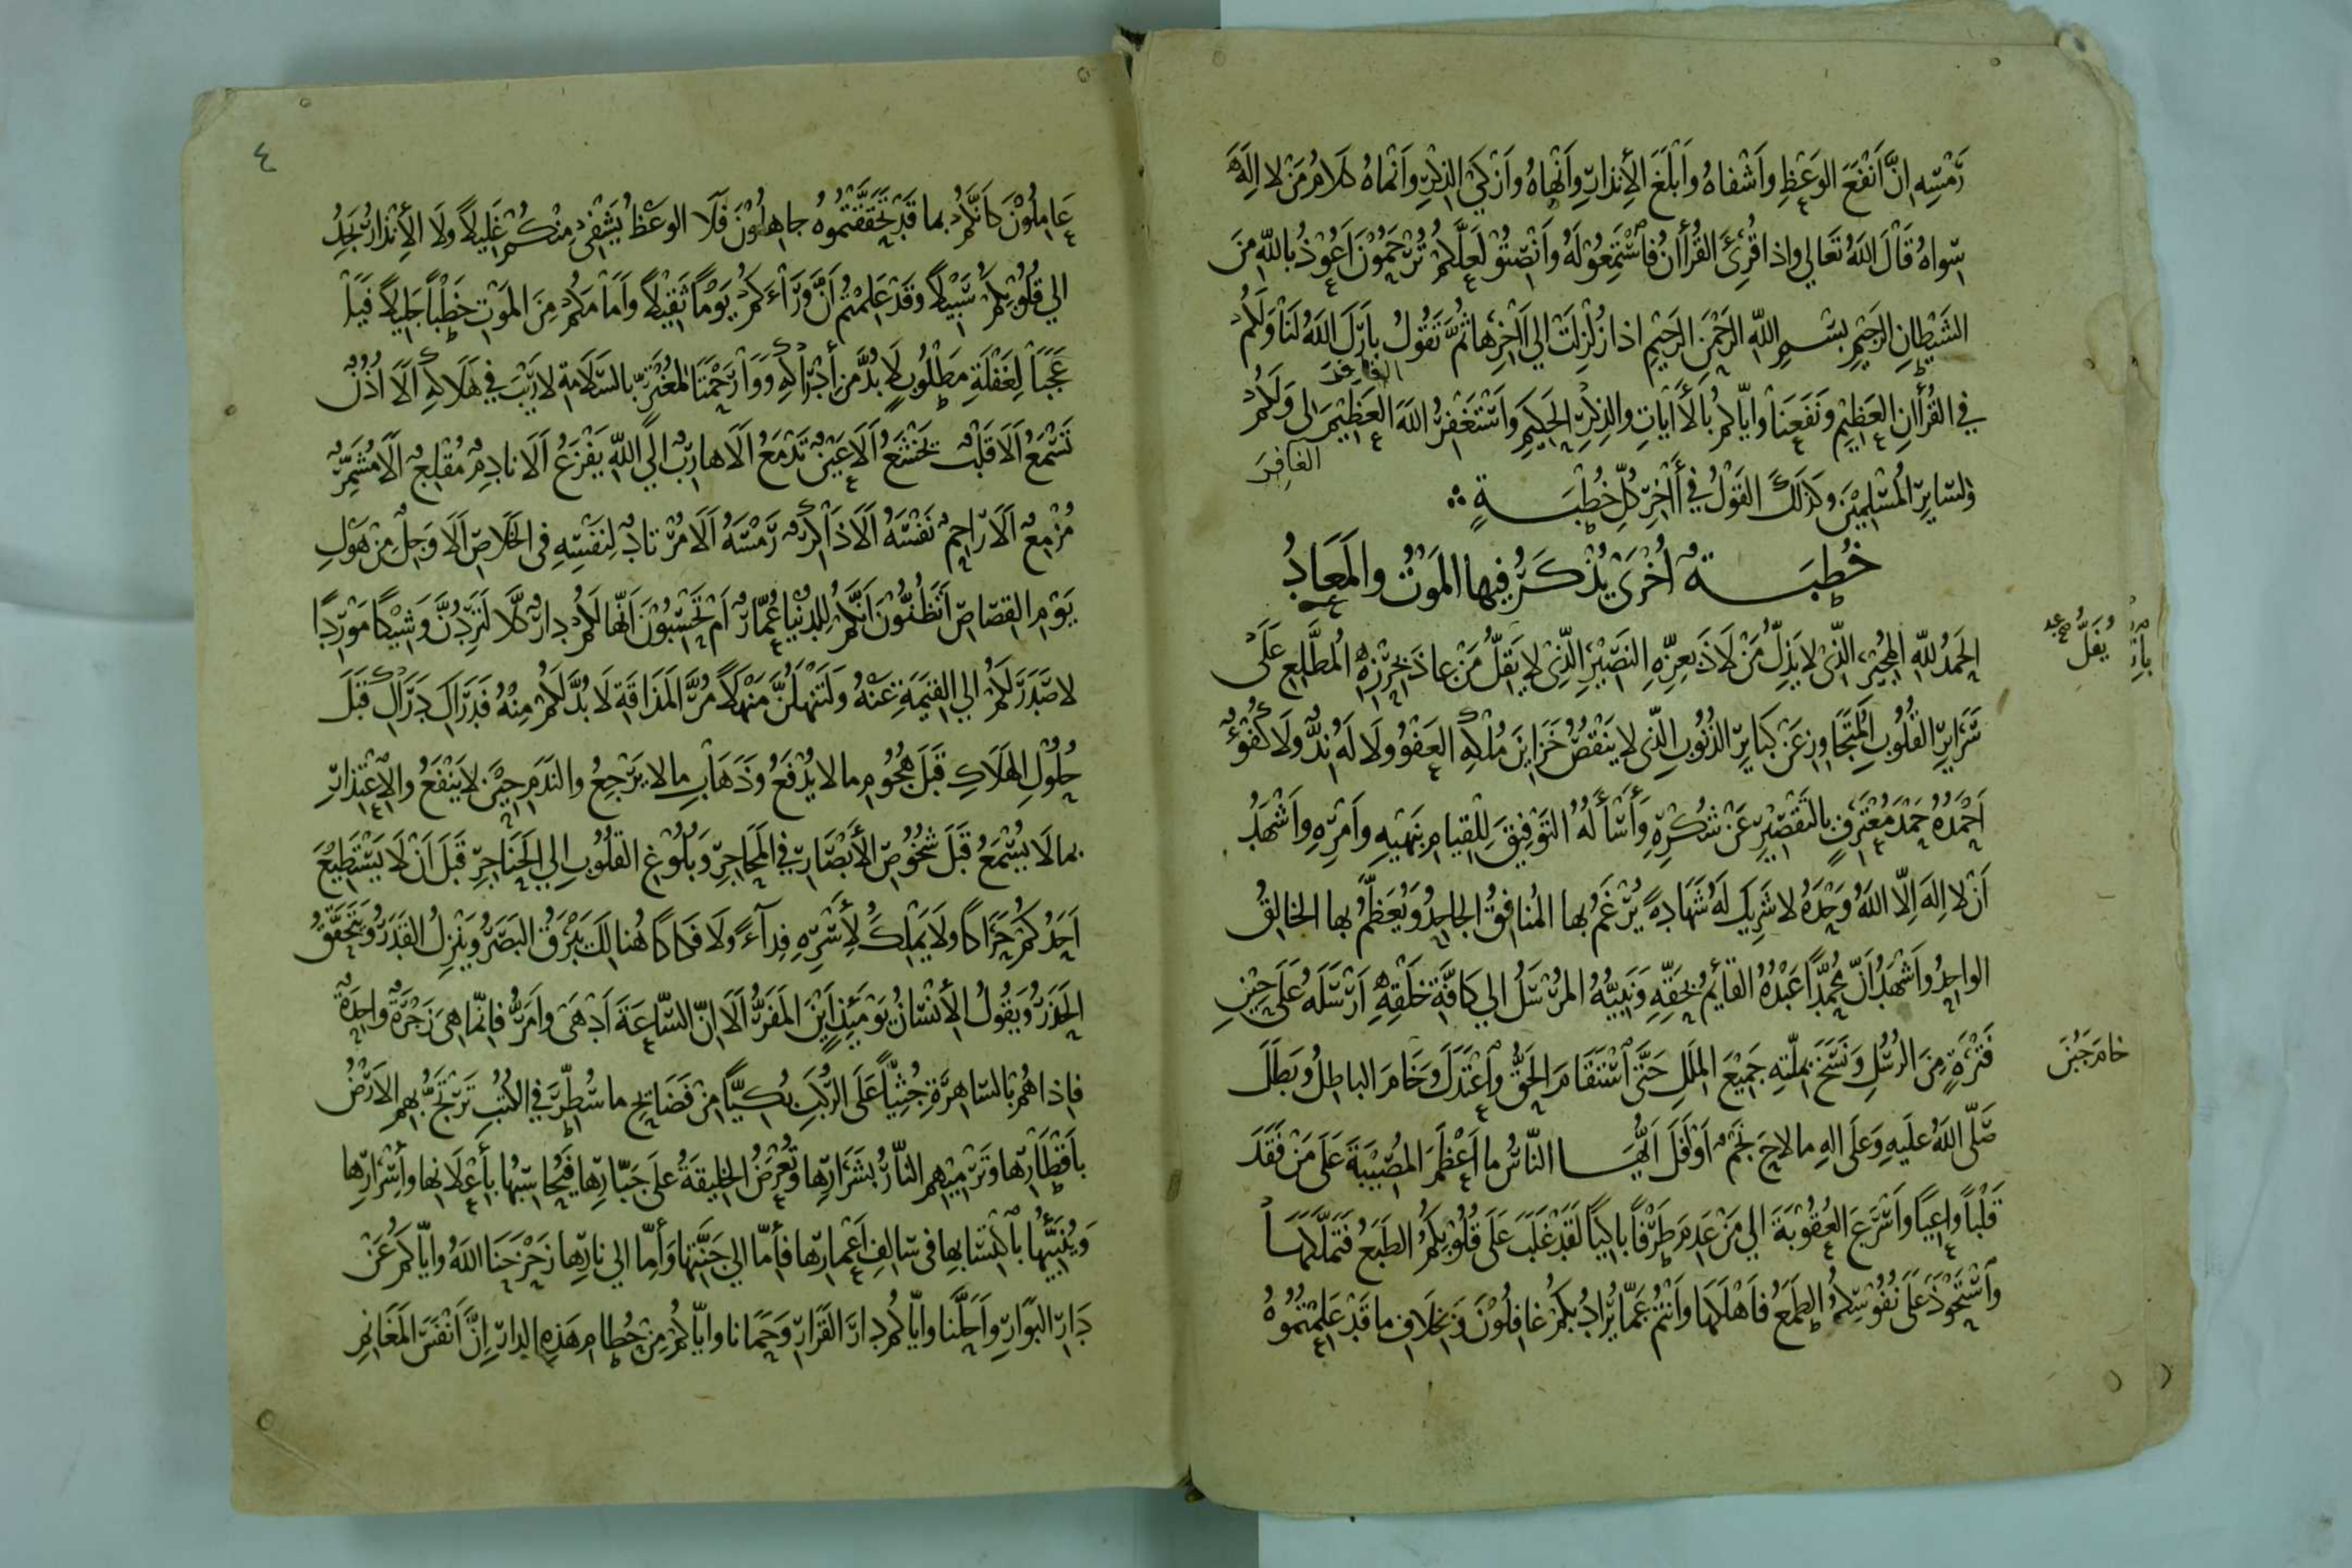 رَمْسِهِ اِنَّ اَنْفَعَ الوَعْظِ واَشْفاهُ وَاَبْلَغَ الأِنذارِ واَنْهاهُ واَزْكَى الذِكْرِ واَنْماهُ كَلامُ مَنْ لا اِلَهَ
سِواهُ قَالَ اللهُ تَعَالى واِذا قُرِئَ القُرأنُ فاسْتَمِعُوْا لَهُ وَاَنْصِتُوْا لَعَلَّكُمْ تُرْحَمُوْنَ اَعُوْذُ باللهِ مِنَ
الشَيْطانِ الرَجِيْمِ بِسْمِ اللهِ الرَحْمنِ الرَحِيْمِ اذا زُلْزِلَتْ الي اَخِرِها ثُمَّ تَقُولُ بارَكَ اللهُ لَنا وَلَكُمْ
في القُرأنِ العَظِيْمِ وَنَفَعَنا وايّاكُم بالأيَاتِ والذِكْرِ الحَكِيْمِ وَاَسْتَغْفِرُ اللهَ العَظِيْمَ لِى وَلَكُمْ
الغافِرَ
ولِسَايِرِ المُسْلِمِيْنَ وكَذَلِكَ القَوْلُ في أَاخِرِ كُلِّ خُطْبَةٍ
خُطبَةٌ اُخْرَى يُذْكَرُ فيها المَوْتُ والمَعَادُ
الحَمدُ للهِ المُجِيْرِ الَّذِى لا يَذِلُّ مَنْ لاَذَ بِعِزِّهِ النَصِيْرِ الَّذِى لا يَقِلُّ مَنْ عاذَ بِحِرْزِهِ المُطَّلِعِ عَلَى
يُفَلُّ صح
سَرَايِرِ القُلُوبِ المُتَجَاوِزِ عَنْ كَبَايِرِ الذُنُوبِ الَّذِى لا يَنْقُصُ خَزَايِنَ مُلْكِهِ العَفْوُ ولَا لَهُ نِدٌّ ولَا كُفُوٌ
اَحْمَدُهُ حَمْدَ مُعْتَرِفٍ بالتَقْصِيْرِ عَنْ شُكْرِهِ وَأَسْأَلُهُ التَوْفِيْقَ لِلْقِيامِ بِنَهْيِهِ وَاَمْرِهِ واَشْهَدُ
اَنْ لا اِلهَ اِلّا اللهُ وَحْدَهُ لا شَرِيكَ لَهُ شَهَادَةً يُرْغَمُ بها المُنافِقُ الجاحِدُ وَيُعَظَّمُ بها الخالِقُ
الواحِدُ وَاَشْهَدُ اَنَّ مُحَمَّدًا عَبْدُهُ القَائِمُ بِحَقِّهِ وَنَبِيُّهُ المُرْسَلُ الي كَافَّةِ خَلْقِهِ اَرْسَلَهُ عَلَى حِيْنِ
فَتْرَةٍ مِنَ الرُسُلِ وَنَسَخَ بِمِلَّتِهِ جَمِيْعَ المِلَلِ حَتَّى اسْتَقَامَ الحَقُّ وَاعْتَدَلَ وَخَامَ الباطِلُ وَبَطَلَ
خامَ جَبُنَ
صَلّى اللهُ عَلَيهِ وَعَلَى الهِ ما لاحَ نَجْمٌ اَوْ اَفَلَ اَيُّهَا النّاسُ ما اَعْظَمَ المُصِيْبَةَ عَلَى مَنْ فَقَدَ
قَلْبًا وَاعِيًا وَاَسْرَعَ العُقُوْبَةَ الي مَنْ عَدِمَ طَرْفًا باكِيًا لَقَدْ غَلَبَ عَلَى قُلُوْبِكُمُ الطَبَعُ فَتَمَلَّكَها
وَاسْتَحْوَذَ عَلَى نُفُوْسِكُمُ الطَمَعُ فَاَهْلَكَها وَاَنْتُمْ عَمّا يُرادُ بِكُمْ غافِلُوْنَ وَبِخِلَافِ ما قَدْ عَلِمْتُمُوهُ
٤
عَامِلُوْنَ كَاَنَّكُمْ بما قَدْ تَحَقَّقْتُمُوهُ جاهِلُوْنَ فَلَا الوَعْظُ يَشْفِى مِنْكُمْ غَلِيلًا ولَا الأِنْذارُ يَجِدُ
الي قُلُوبِكُمْ سَبِيْلًا وقَدْ عَلِمْتُمْ اَنَّ وَرَاءَكُمْ يَوْمًا ثَقِيْلًا وَاَمامَكُمْ مِنَ المَوْتِ خَطْبًا جَلِيْلًا فَيا
عَجَبًا لِغَفْلَةِ مَطْلُوبٍ لَا بُدَّ مِن أدْرَاكِهِ وَوَارَحْمَتَا لمُغْتَرٍّ بالسَلَامَةِ لا رَيْبَ في هَلَاكِهِ اَلَا اُذُنٌ
تَسْمَعُ اَلَا قَلْبٌ يَخْشَعُ اَلَا عَيْنٌ تَدْمَعُ اَلَا هارِبٌ الَي اللهِ يَفْزَعُ اَلَا نادِمٌ مُقْلِعٌ اَلَا مُشَمِّرٌ
مُزْمِعٌ اَلَا رَاحِمٌ نَفْسَهُ اَلَا ذَاكِرٌ رَمْسَهُ اَلَا مُرْتادٌ لِنَفْسِهِ فى الخَلَاصِ اَلَا وَجِلٌ مِنْ هَوْلِ
يَوْمِ القِصَاصِ اَتَظُنُّوْنَ اَنَّكُمْ لِلدُنْيَا عُمَّارٌ اَمْ تَحْسَبُوْنَ اَنَّها لَكُمْ دارٌ كَلَّا لَتَرِدُنَّ وَشِيْكًا مَوْرِدًا
لا صَدَرَ لَكُمْ الي القِيَمَةِ عَنْهُ وَلَتَنْهَلُنَّ مَنْهَلًا مُرَّ المَذَاقَةِ لَا بُدَّ لَكُمْ مِنْهُ فَدَرَاكِ دَرَاكِ قَبْلَ
حُلُوْلِ الهَلَاكِ قَبْلَ هُجُوْمِ ما لا يُدْفَعُ وَذَهَابِ ما لا يَرْجِعُ والنَدَمِ حِيْنَ لا يَنْفَعُ والاعْتِذارِ
بما لَا يُسْمَعُ قَبْلَ شُخُوْصِ الأَبْصَارِ في المَحَاجِرِ وَبُلُوْغِ القُلُوبِ الي الحَنَاجِرِ قَبْلَ اَنْ لَا يَسْتَطِيْعَ
اَحَدُكُمْ حَرَاكًا ولَا يَمْلِكُ لِأَسْرِهِ فِدآءً ولَا فَكاكًا هُنالِكَ يَبْرَقُ البَصَرُ وَيَنْزِلُ القَدَرُ وَيَتَحَقَّقُ
الحَذَرُ وَيَقُولُ الأنْسَانُ يَوْمَئِذٍ اَيْنَ المَفَرُّ اَلَا اِنَّ السَّاعَةَ اَدْهَى واَمَرُّ فاِنَّما هِىَ زَجْرَةٌ واحِدَةٌ
فاِذا هُمْ بالسَاهِرَةِ جُثِيًّا عَلَى الرُكَبِ بُكِيًّا مِنْ فَضَايِحِ ما سُطِّرَ في الكُتُبِ تَرْتَجُّ بِهِمِ الاَرْضُ
بِاَقْطَارِها وَتَرْمِيْهِمِ النَّارُ بِشَرَارِها وَتُعْرَضُ الخَلِيقَةُ عَلَى جَبَّارِها فَيُحَاسِبُها بِأِعْلَانِها وأِسْرَارِها
وَيُنَبِّيْهُا بِاكْتِسَابِها فى سَالِفِ اَعْمَارِها فأِمّا الي جَنَّتِها وَأِمّا الي نارِها زَحْزَحَنَا اللهُ وايّاكُمْ عَنْ
دَارِ البَوَارِ واَحَلَّنا وايّاكُم دارَ القَرَارِ وَحَمَانا وايّاكُمْ مِنْ حُطامِ هَذِهِ الدارِ اِنَّ اَنْفَسَ المَغَانِمِ